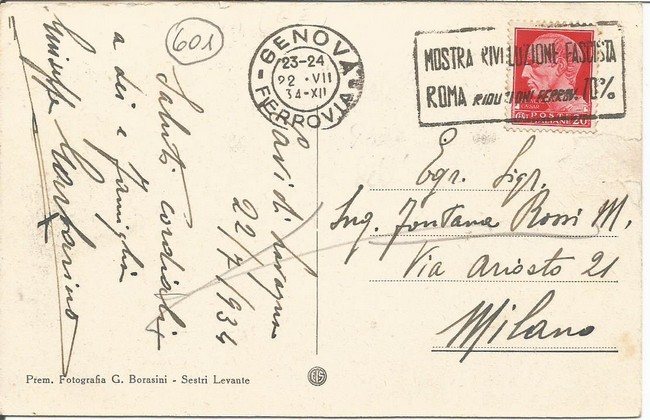 601
GENOVA
23-24
22·VII
34-XII
FERROVIA
MOSTRA RIVOLUZIONE FASCISTA
ROMA RIDUZIONI FERROV. 70%
POSTE
ITALIANE 20
Cavi di Lavagna
22/7/934
Saluti cordiali
a lei e famiglia
Giuseppe
Egr. Sigr.
Ing. Fontana Rossi M.
Via Ariosto 21
Milano
Prem. Fotografia G. Borasini - Sestri Levante